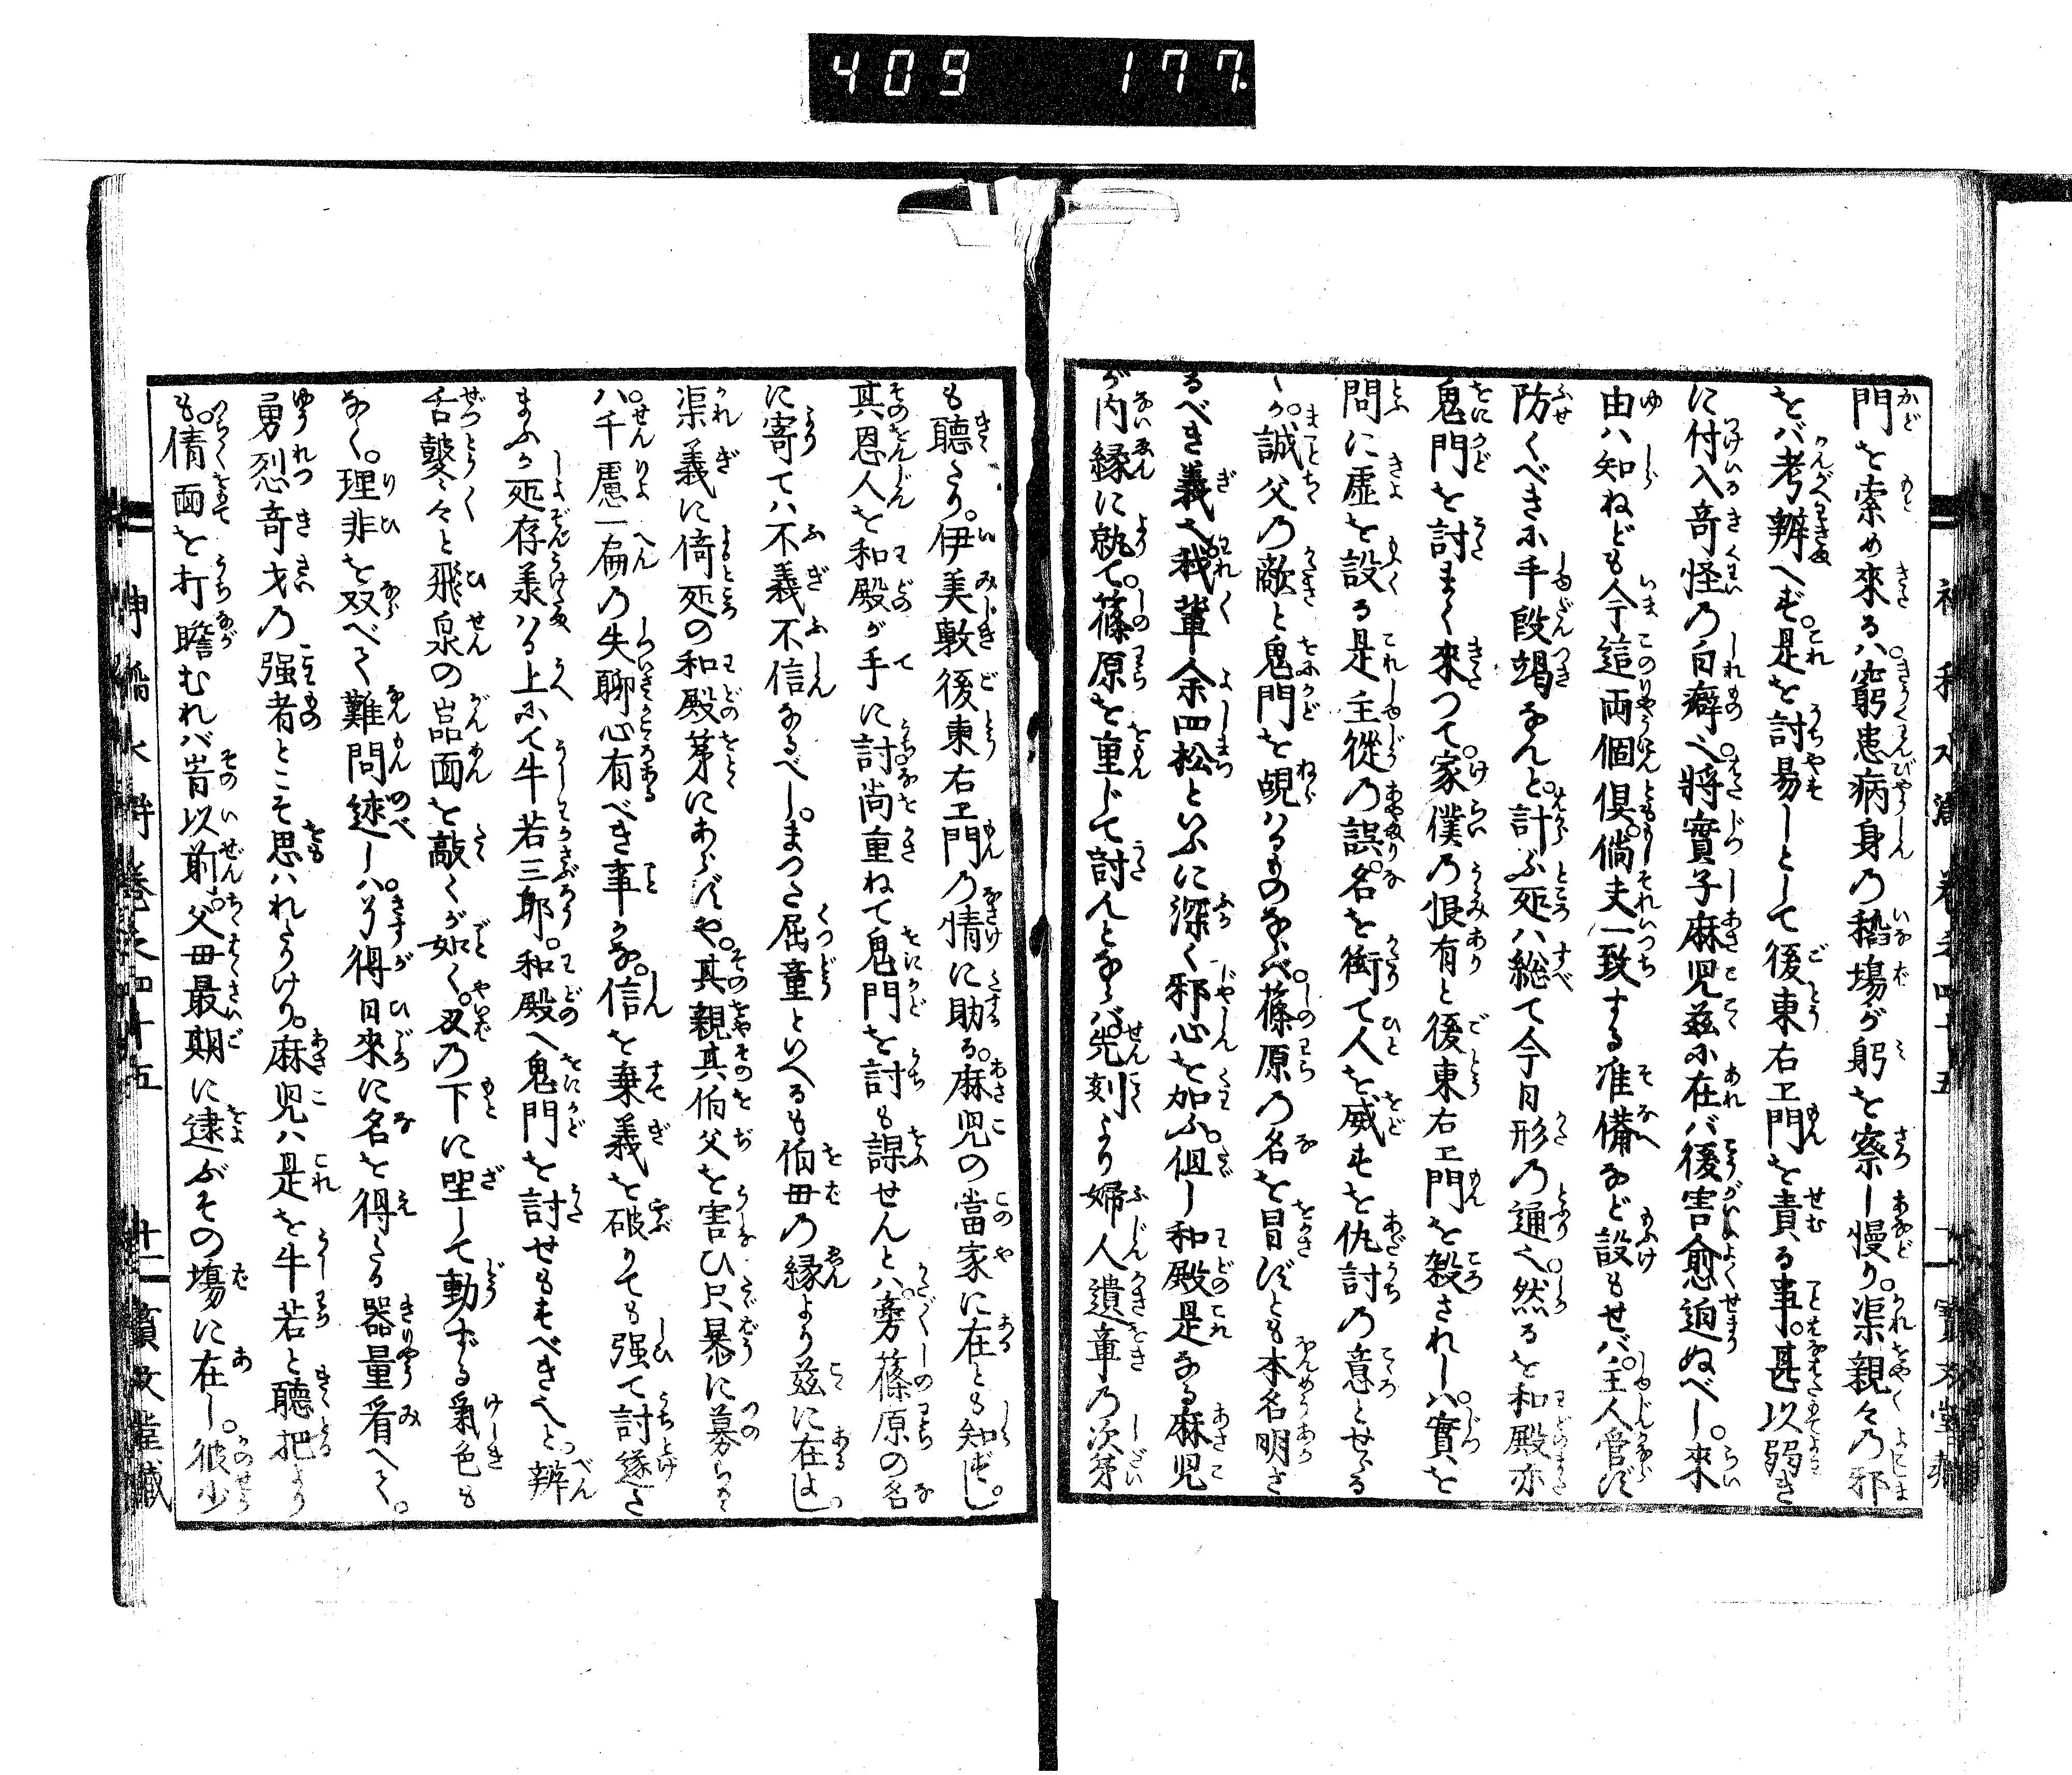 409 177
門を索め來るハ窮患病身乃稲塲が躬を察し慢り。渠親々乃邪
をバ考辨へず。是を討易しとして後東右エ門を責る事。甚以弱き
に付入奇怪乃白癖へ將實子麻児茲に在バ後害愈迫ぬべし。來
由ハ知ねども今這両個倶。倘夫一致する准備など設もせバ。主人啻ず
防くべきふ手段竭なんと。計ぶ処ハ総て今日形乃通へ。然るを和殿亦
鬼門を討まく來つて。家僕乃恨有と後東右エ門を殺されしハ。實を
問に虚を設る是主從乃誤。名を衒て人を威もを仇討乃意とせらる
ゝか。誠父乃敵と鬼門を覘ハるものならバ。篠原乃名を冒ずとも本名明さ
るべき義へ我輩余四松といふに深く邪心を加ふ。但し和殿是なる麻児
が内縁に就て。篠原を重じて討んとならバ先刻より婦人遺章乃次第
も聽たり。伊美敷後東右エ門乃情に助る。麻児の當家に在とも知ずし。
其恩人を和殿が手に討尚重ねて鬼門を討も謀せんとハ。旁篠原の名
に寄てハ不義不信なるべし。まつた屈童といへるも伯毋乃縁より茲に在よし。
渠義に倚処の和殿第にあらずや。其親其伯父を害ひ只暴に募らるゝ
ハ。千慮一扁乃失聊心有べき事かな。信を棄義を破りても强て討遂た
まふか処存羕ハる上にて牛若三郎。和殿へ鬼門を討せもすべきへと。辨
舌鼕々と飛泉の嵓面を敲くが如く。刄乃下に坐して動ずる氣色も
なく。理非を双べて難問逑しハ。得日來に名を得たる器量看へて。
勇烈奇才乃强者とこそ思ハれたりけり。麻児ハ是を牛若と聽把より
も。倩面を打瞻むれバ岢以前。父毋最期に逮ぶその塲に在し。彼少